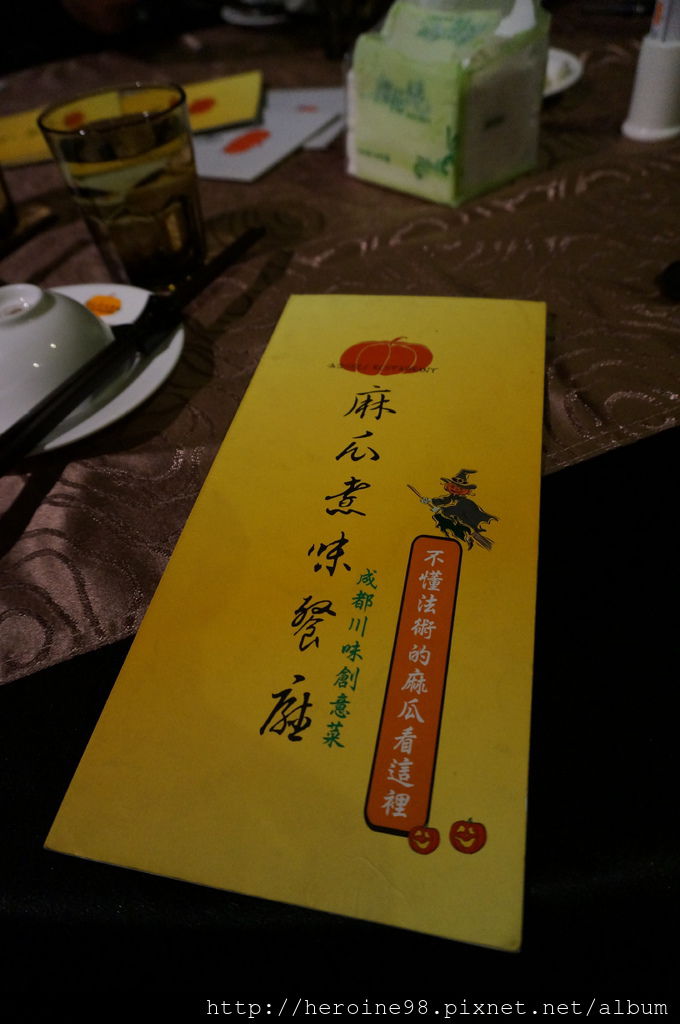 麻瓜煮味餐廳
成都川味創意菜
不懂法術的麻瓜看這裡
http://heroine98.pixnet.net/album